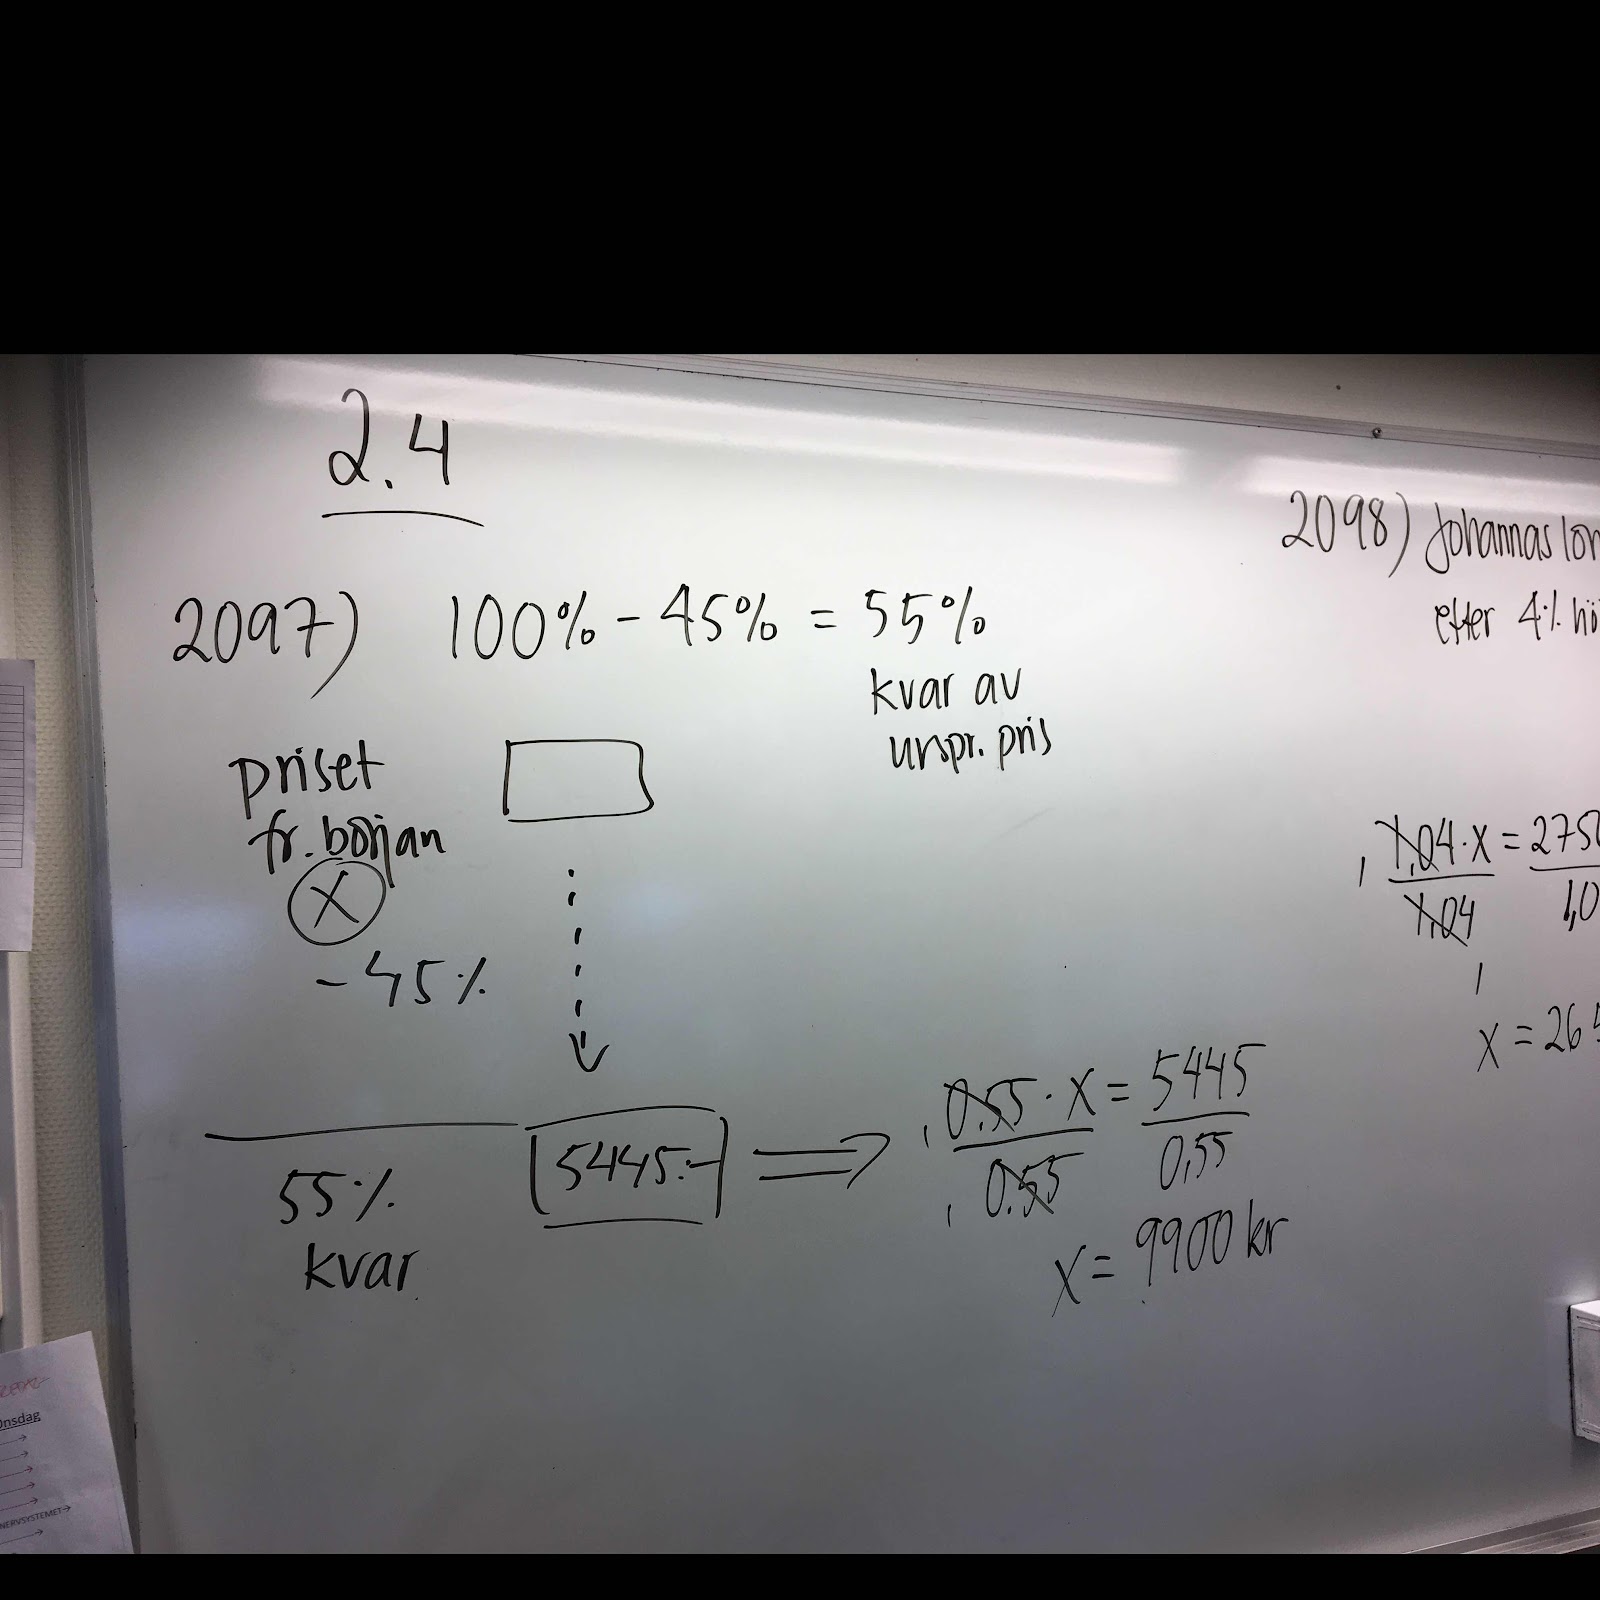 2.4
2097) 100% - 45% = 55%
kvar av
urspr. pris
priset
fr. början
X
- 45%
55%
kvar
5445:-
0.55 · x = 5445
0.55 0,55
x = 9900 kr
2098) Johannas lön
efter 4% hö
1,04 · x = 2756
1,04 1,0
x = 26 5
Onsdag
NERVSYSTEMET